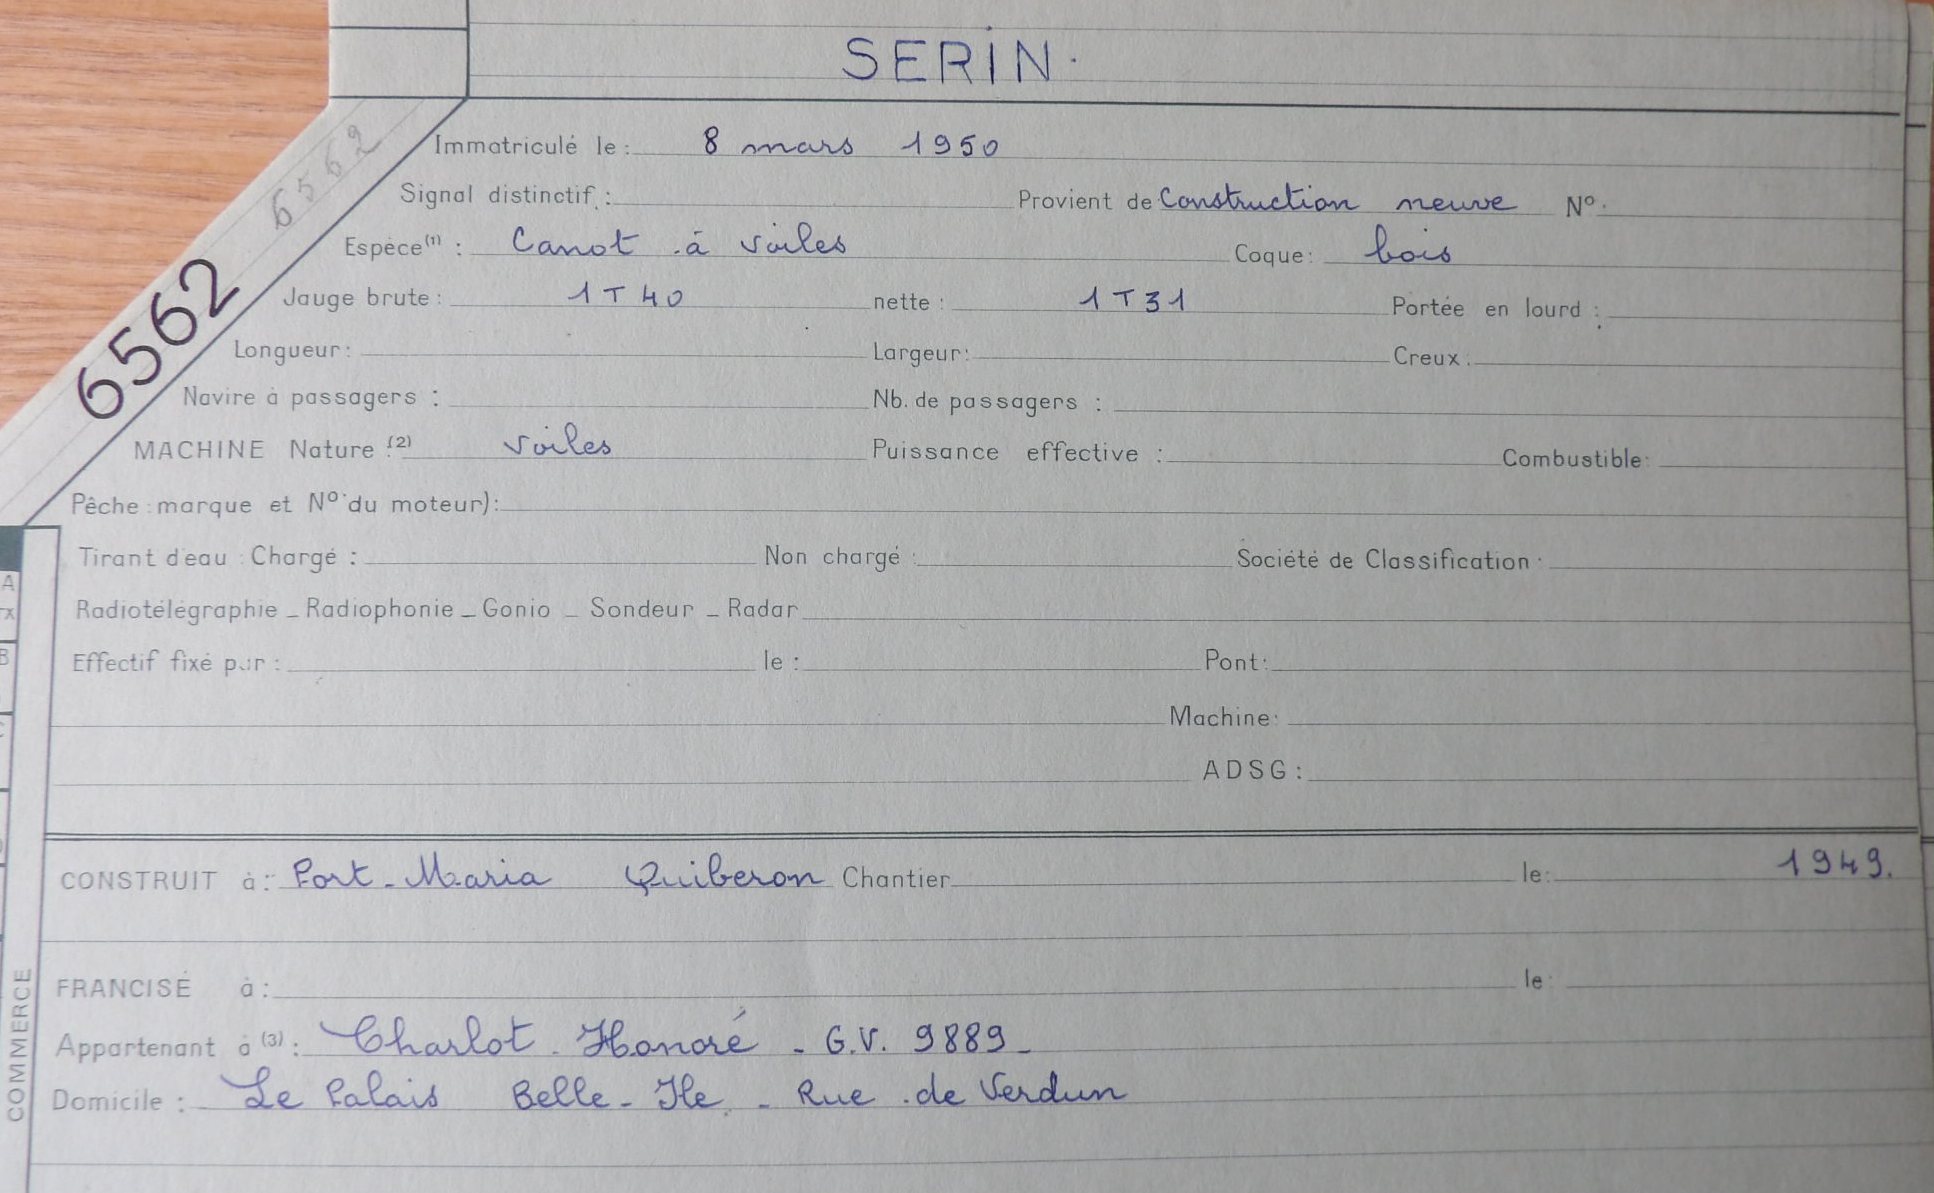 SERIN.
6562
6562
Immatriculé le : 8 mars 1950
Signal distinctif : Provient de Construction neuve N°.
Espèce (1) : Canot à voiles Coque : bois
Jauge brute : 1 T 40 nette : 1 T 31 Portée en lourd :
Longueur : Largeur : Creux :
Navire à passagers : Nb. de passagers :
MACHINE Nature (2) : voiles Puissance effective : Combustible :
Pêche : marque et N° du moteur) :
Tirant d'eau : Chargé : Non chargé : Société de Classification :
Radiotélégraphie _ Radiophonie _ Gonio _ Sondeur _ Radar
Effectif fixé par : le : Pont :
Machine :
ADSG :
CONSTRUIT à : Port-Maria Quiberon Chantier le : 1949.
FRANCISÉ à : le :
Appartenant à (3) : Charlot Honoré - G.V. 9889 -
Domicile : Le Palais Belle-Ile - Rue de Verdun
COMMERCE
A
B